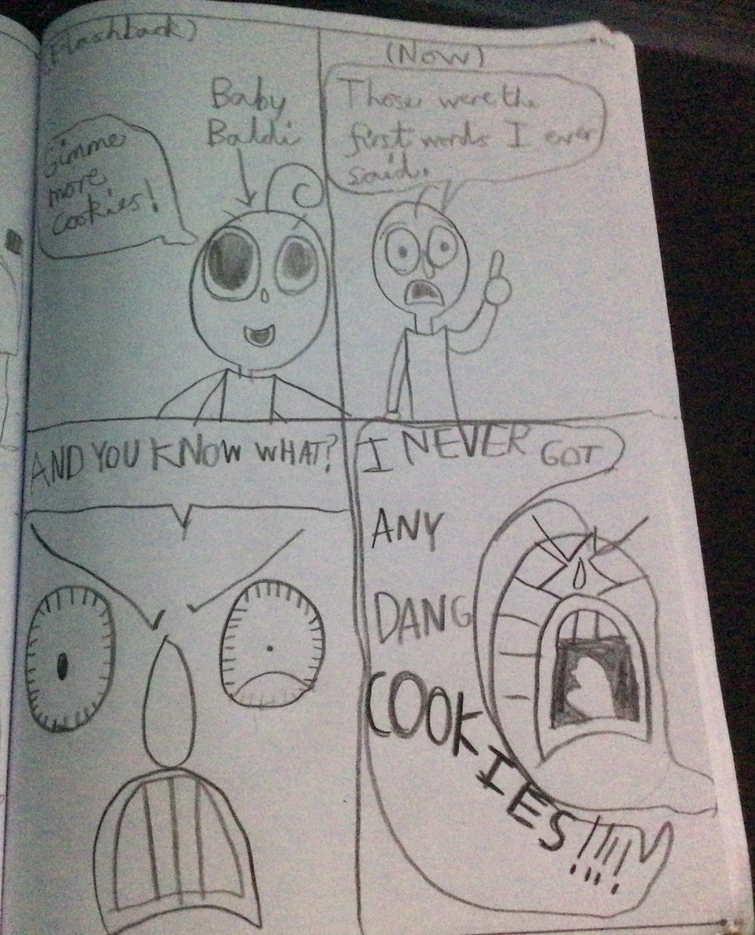 (Flashback)
Baby
Baldi
Gimme
more
Cookies!
(Now)
Those were the
first words I ever
said.
AND YOU KNOW WHAT?
I NEVER GOT
ANY
DANG
COOKIES!!!!